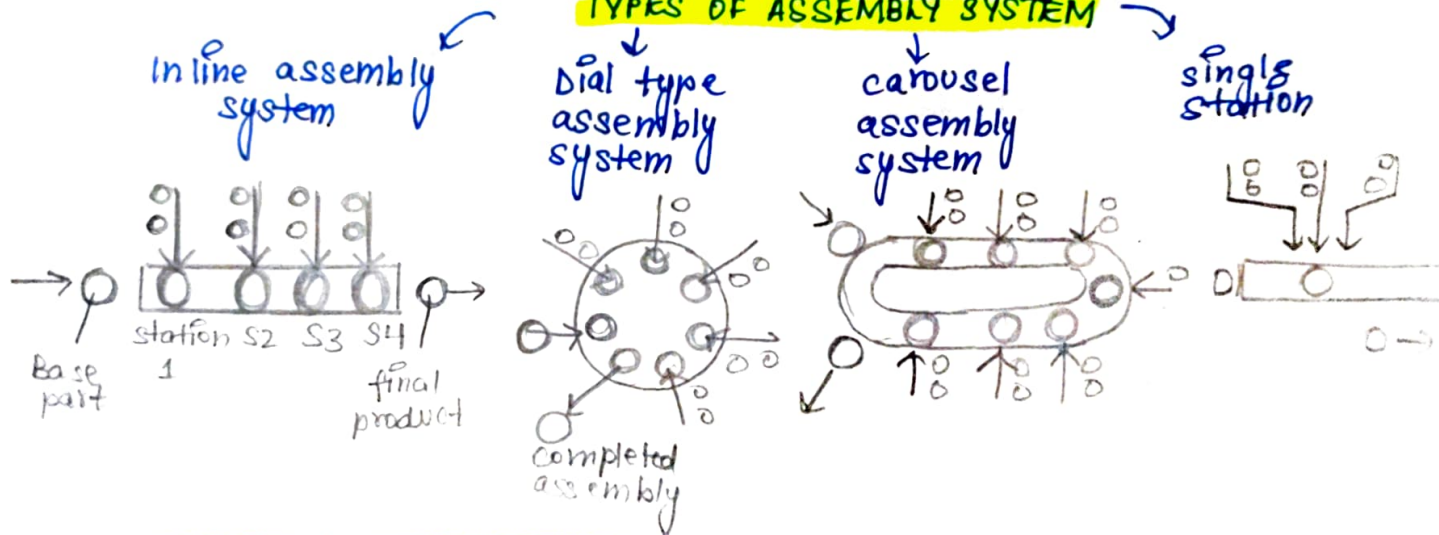 TYPES OF ASSEMBLY SYSTEM
Inline assembly
system
Dial type
assembly
system
carousel
assembly
system
single
station
station S2 S3 S4
1
Base
part
final
product
completed
assembly